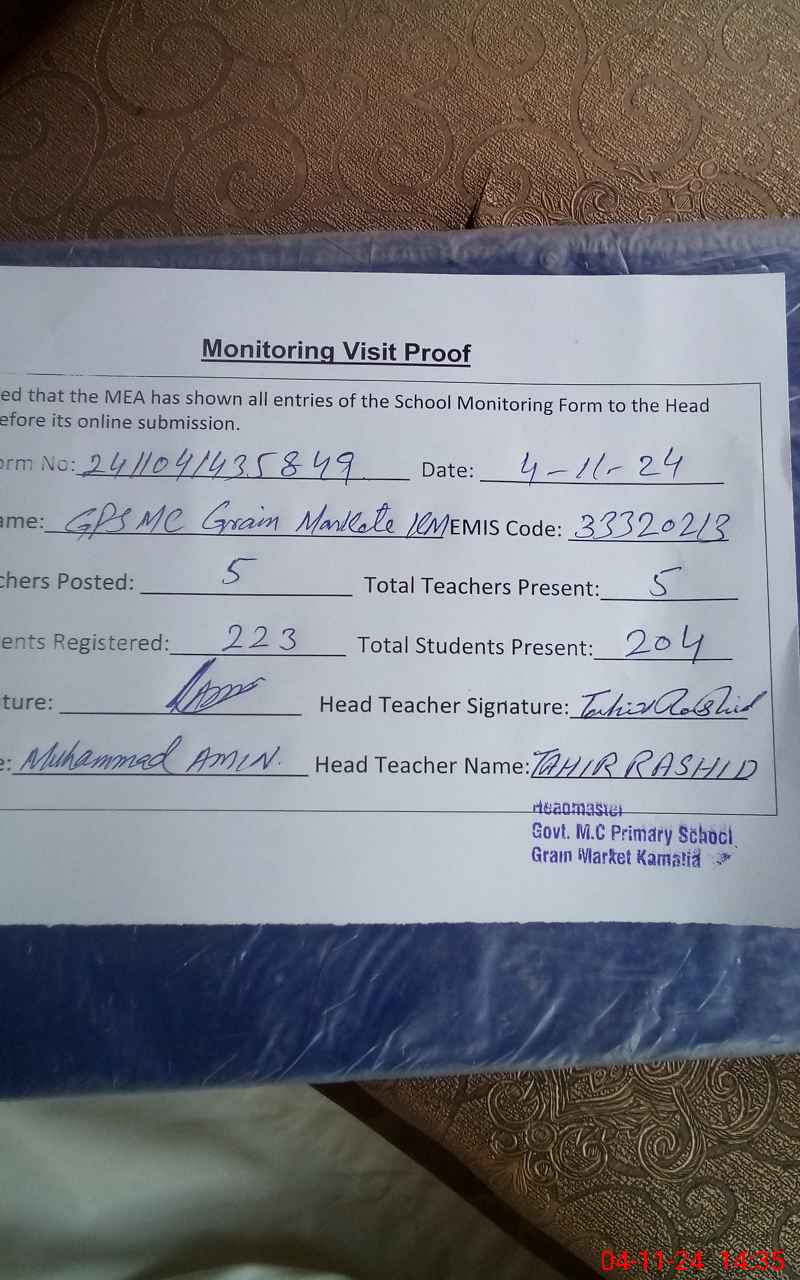 Monitoring Visit Proof
ed that the MEA has shown all entries of the School Monitoring Form to the Head
efore its online submission.
orm No: 2411041435849 Date: 4-11-24
ame: GPS MC Grain Markete KM EMIS Code: 33320213
chers Posted: 5 Total Teachers Present: 5
ents Registered: 223 Total Students Present: 204
ture: Head Teacher Signature: Tahir Rashid
e: Muhammad AMIN. Head Teacher Name: TAHIR RASHID
Headmaster
Govt. M.C Primary School
Grain Market Kamalia
04-11-24 14:35